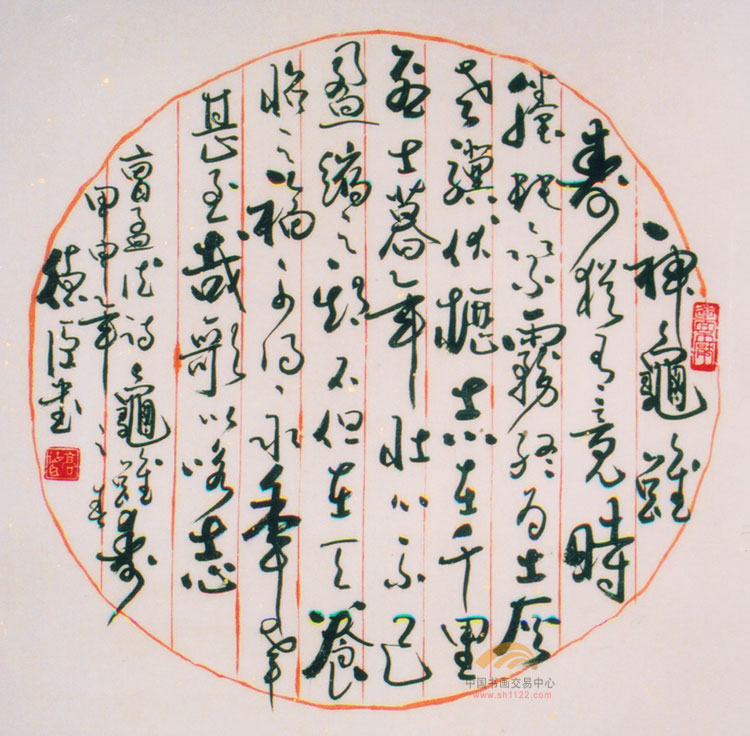 神龜雖
寿猶有竟時
螣蛇乘霧終為土灰
老驥伏櫪志在千里
烈士暮年壯心不已
盈縮之期不但在天養
怡之福可得永年幸
甚至哉歌以咏志
曹孟德詩龜雖寿
甲申年之春
德书
中国书画交易中心
www.sh1122.com